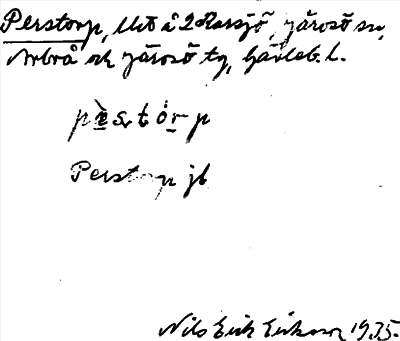 Perstorp, llet å 2 Korsjö, Järvsö sn,
Arbrå och Järvsö tg, Gävleb. l.
pèstórp
Perstorp jl
Nils Erik Erikson 1935.